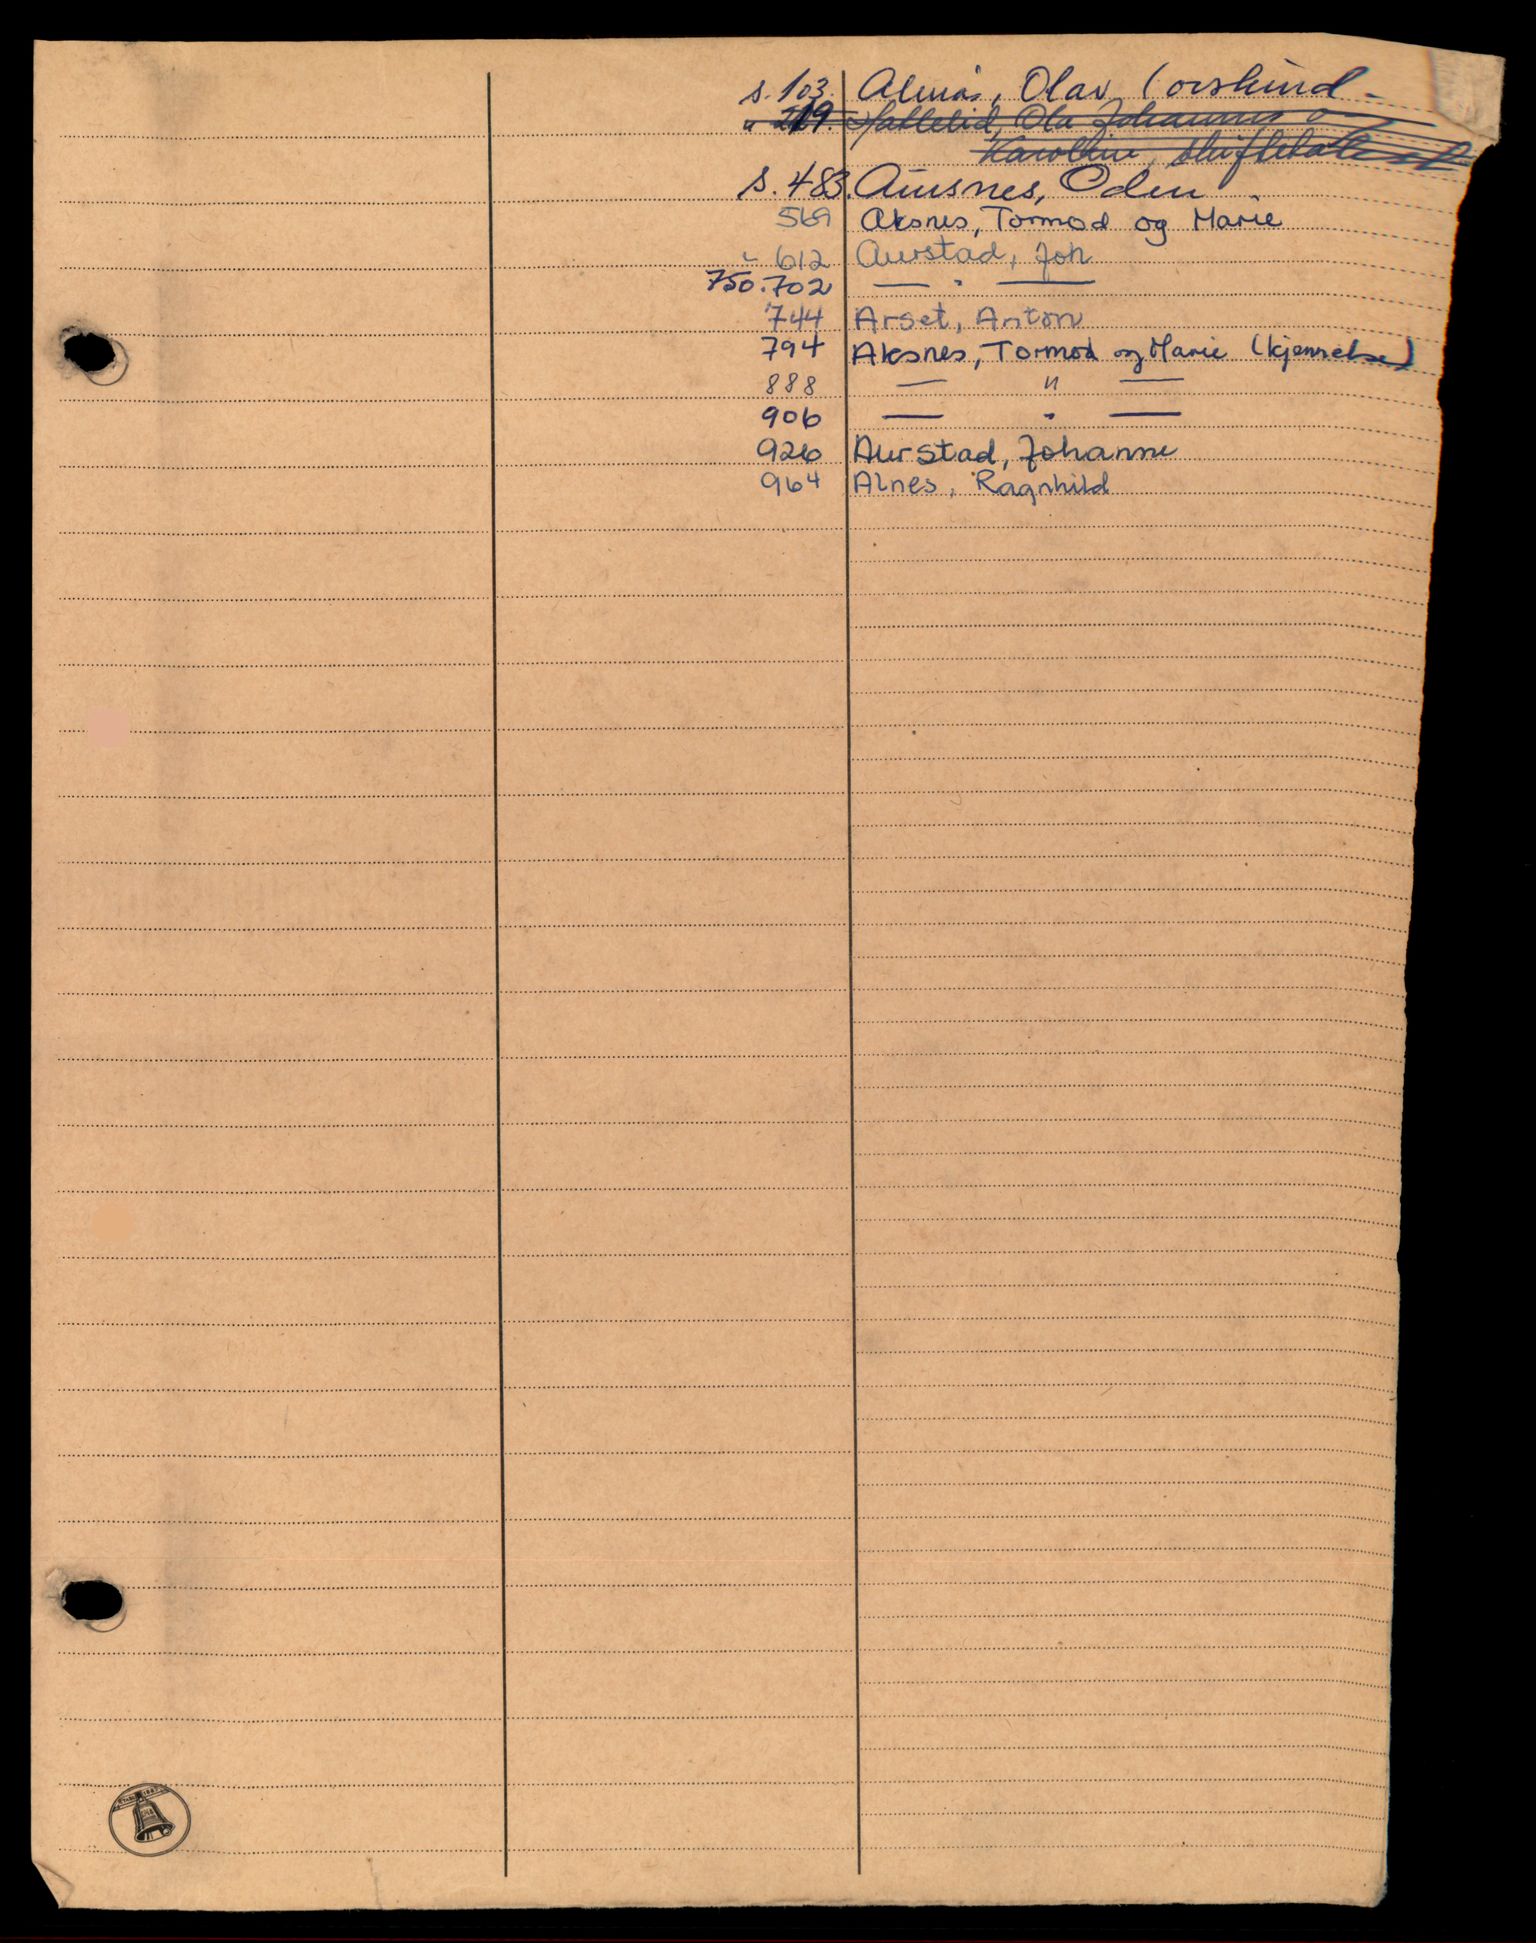 s. 103. Almås, Olav, (ovskind.
" 219. Hatlelid, Ola Johannes og
Karoline, skifteattest
s. 483. Ausnes, Oden
569 Aksnes, Tormod og Marie
" 612 Aurstad, Joh
750.702 — " —
744 Arset, Anton
794 Aksnes, Tormod og Marie (kjennelse)
888 — " —
906 — " —
926 Aurstad, Johanne
964 Alnes, Ragnhild